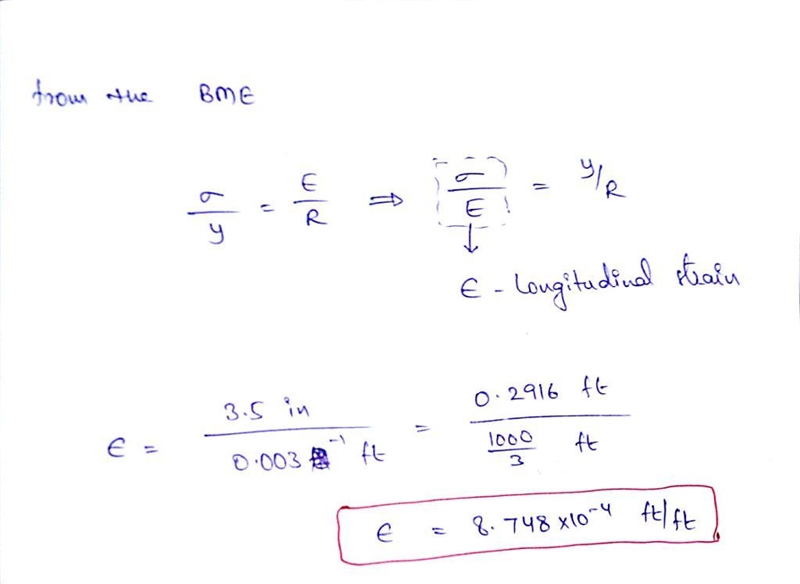 from the BME
σ/y = E/R ⇒ σ/E = y/R
ϵ - Longitudinal strain
ϵ = 3.5 in / 0.003⁻¹ ft = 0.2916 ft / (1000/3) ft
ϵ = 8.748×10⁻⁴ ft/ft